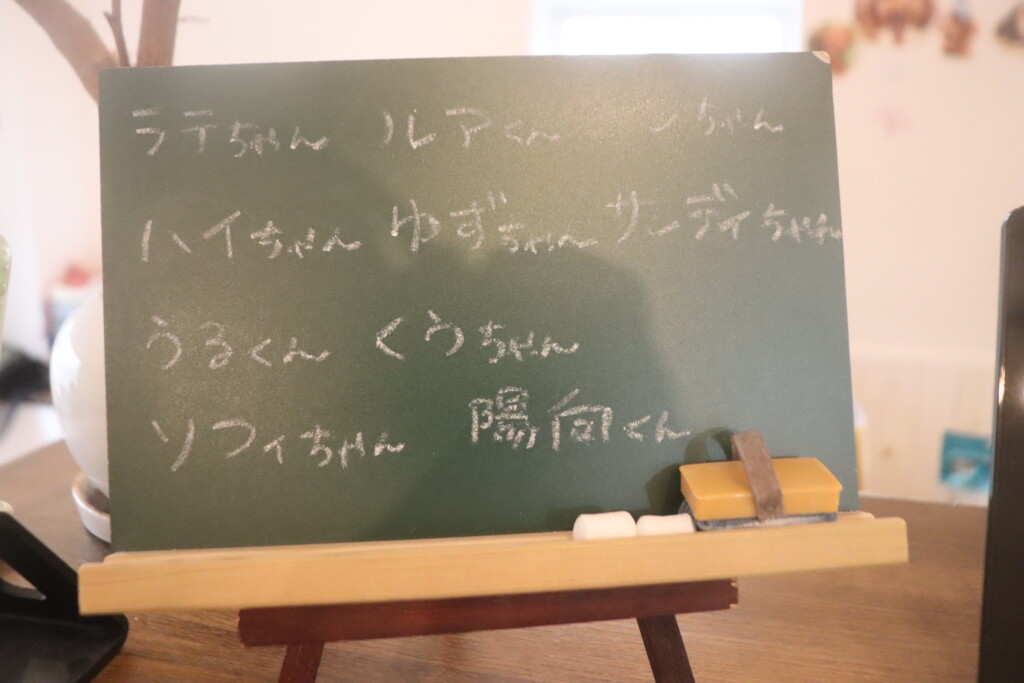 ラテちゃん ルアくん ちゃん
ハイちゃん ゆずちゃん サンディちゃん
うるくん くうちゃん
ソフィちゃん 陽向くん